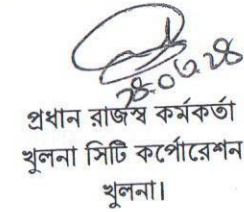 প্রধান রাজস্ব কর্মকর্তা
খুলনা সিটি কর্পোরেশন
খুলনা।